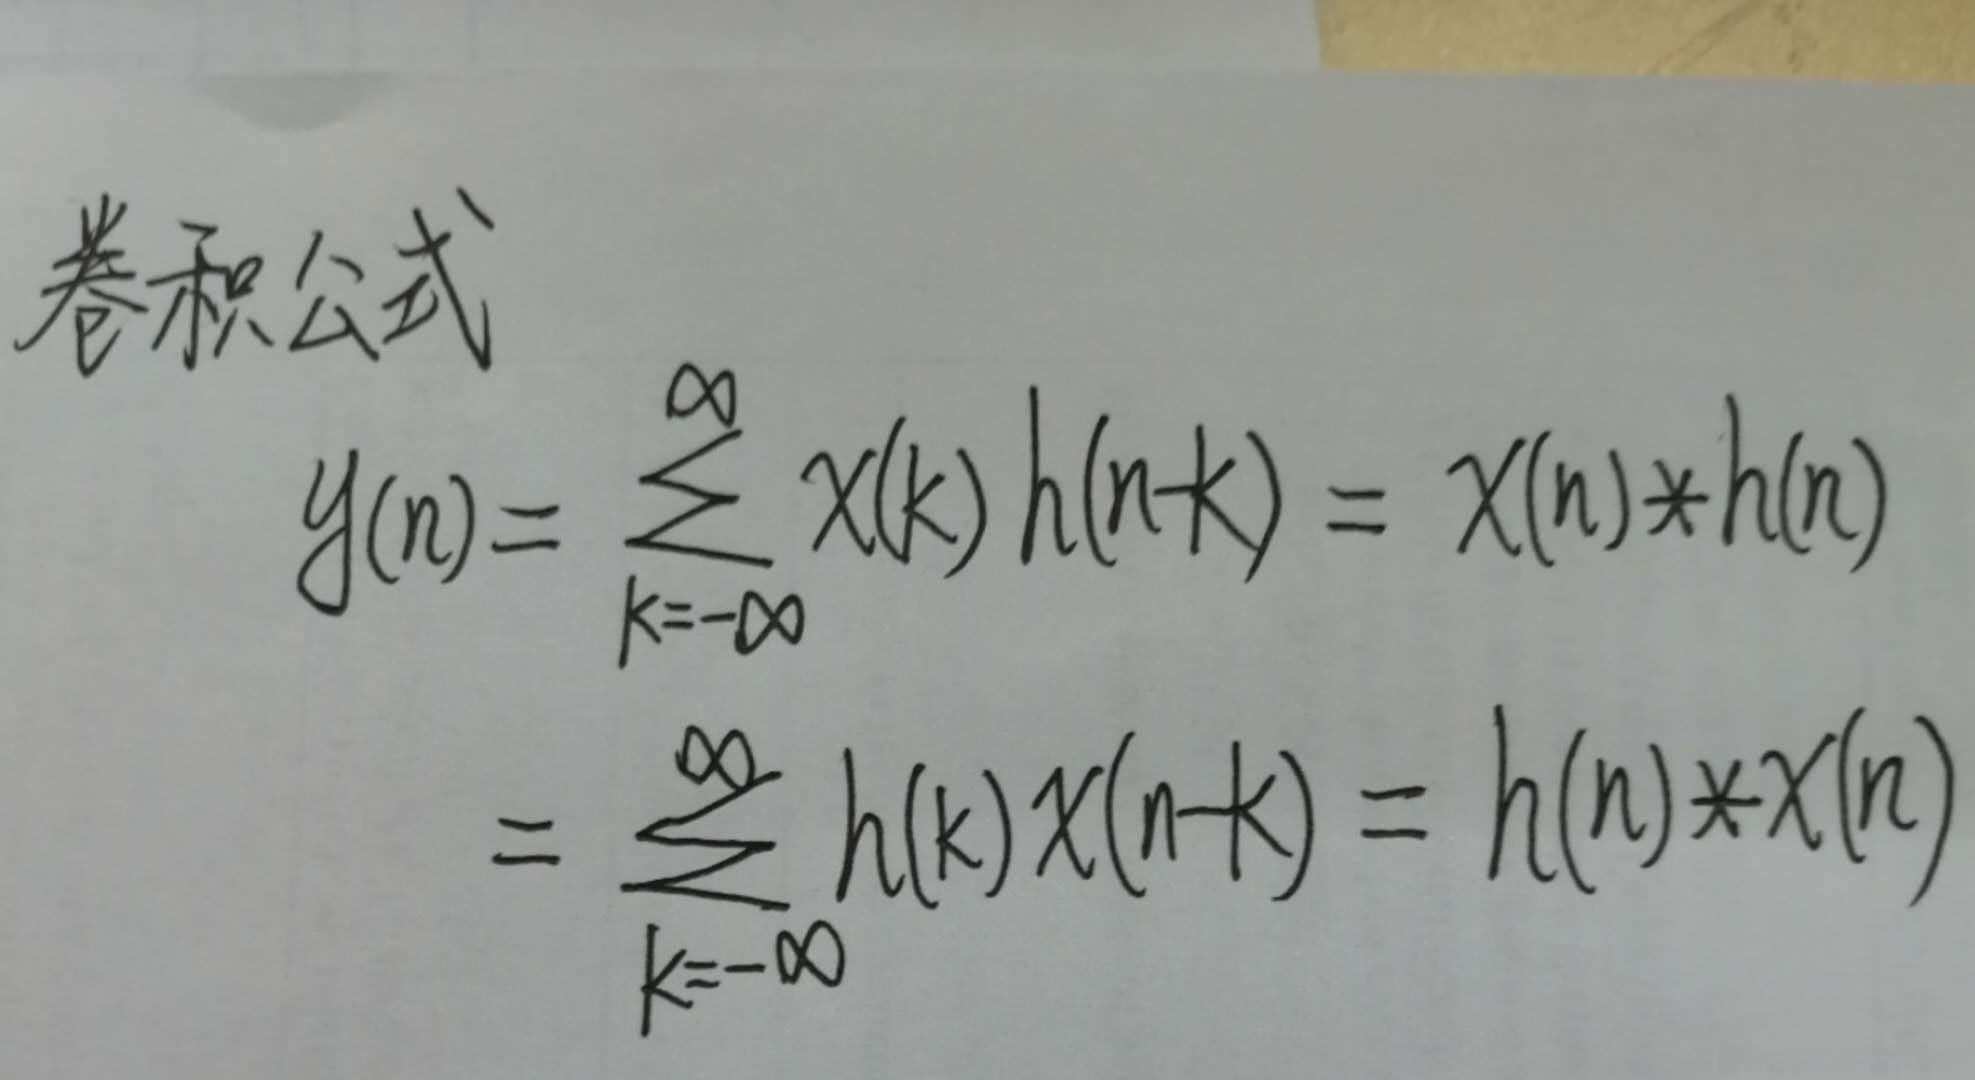 卷积公式
y(n) = ∑_{k=-∞}^{∞} x(k) h(n-k) = x(n) * h(n)
= ∑_{k=-∞}^{∞} h(k) x(n-k) = h(n) * x(n)